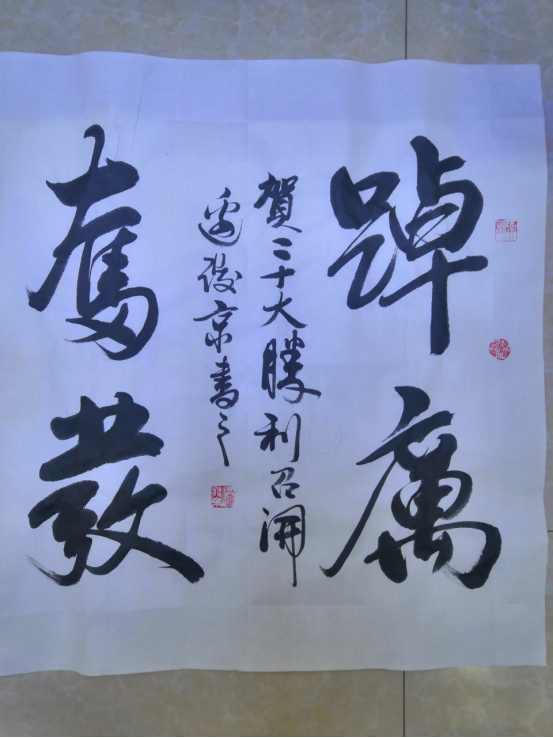 踔厲
賀二十大勝利召開
邊俊京書之
奮發